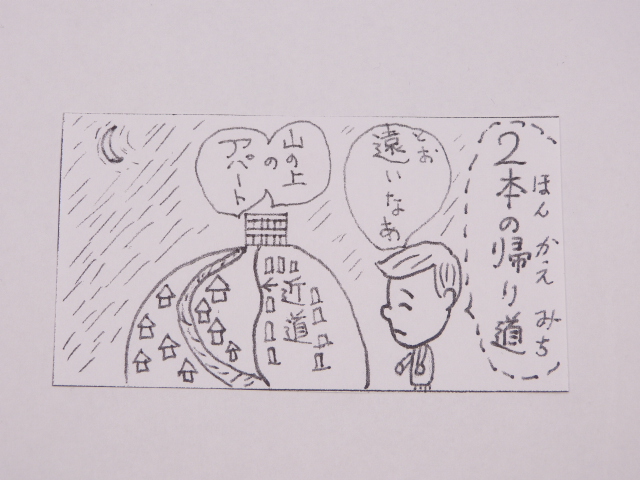 2本の帰り道
ほん かえ みち
遠いなあ
とお
山の上
の
アパート
近道